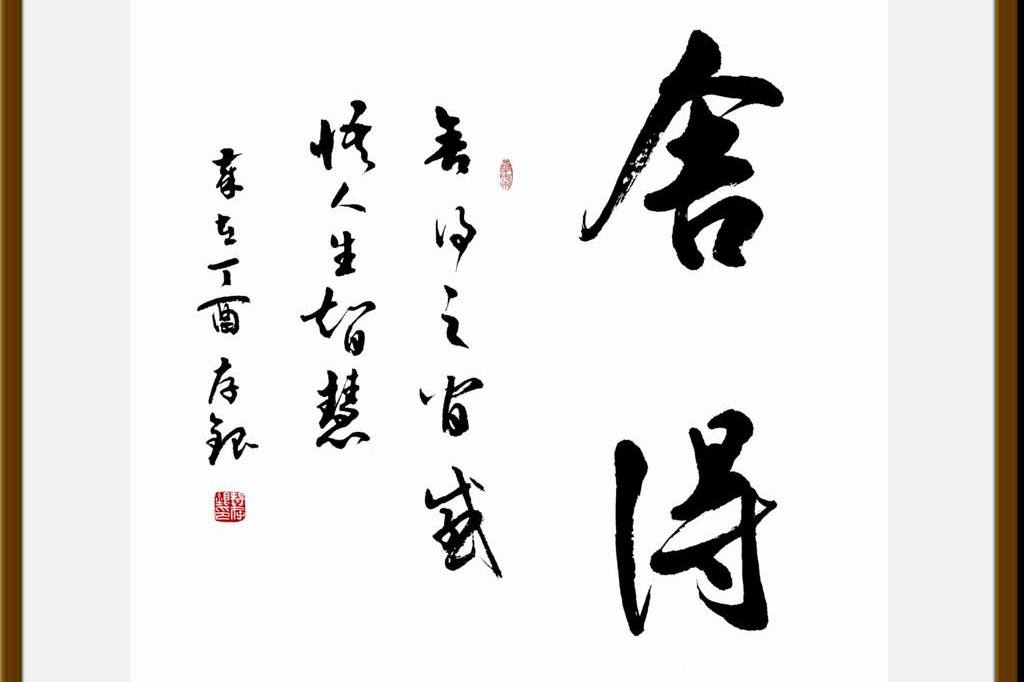 舍得
舍得之間感
悟人生智慧
歲在丁酉存銀